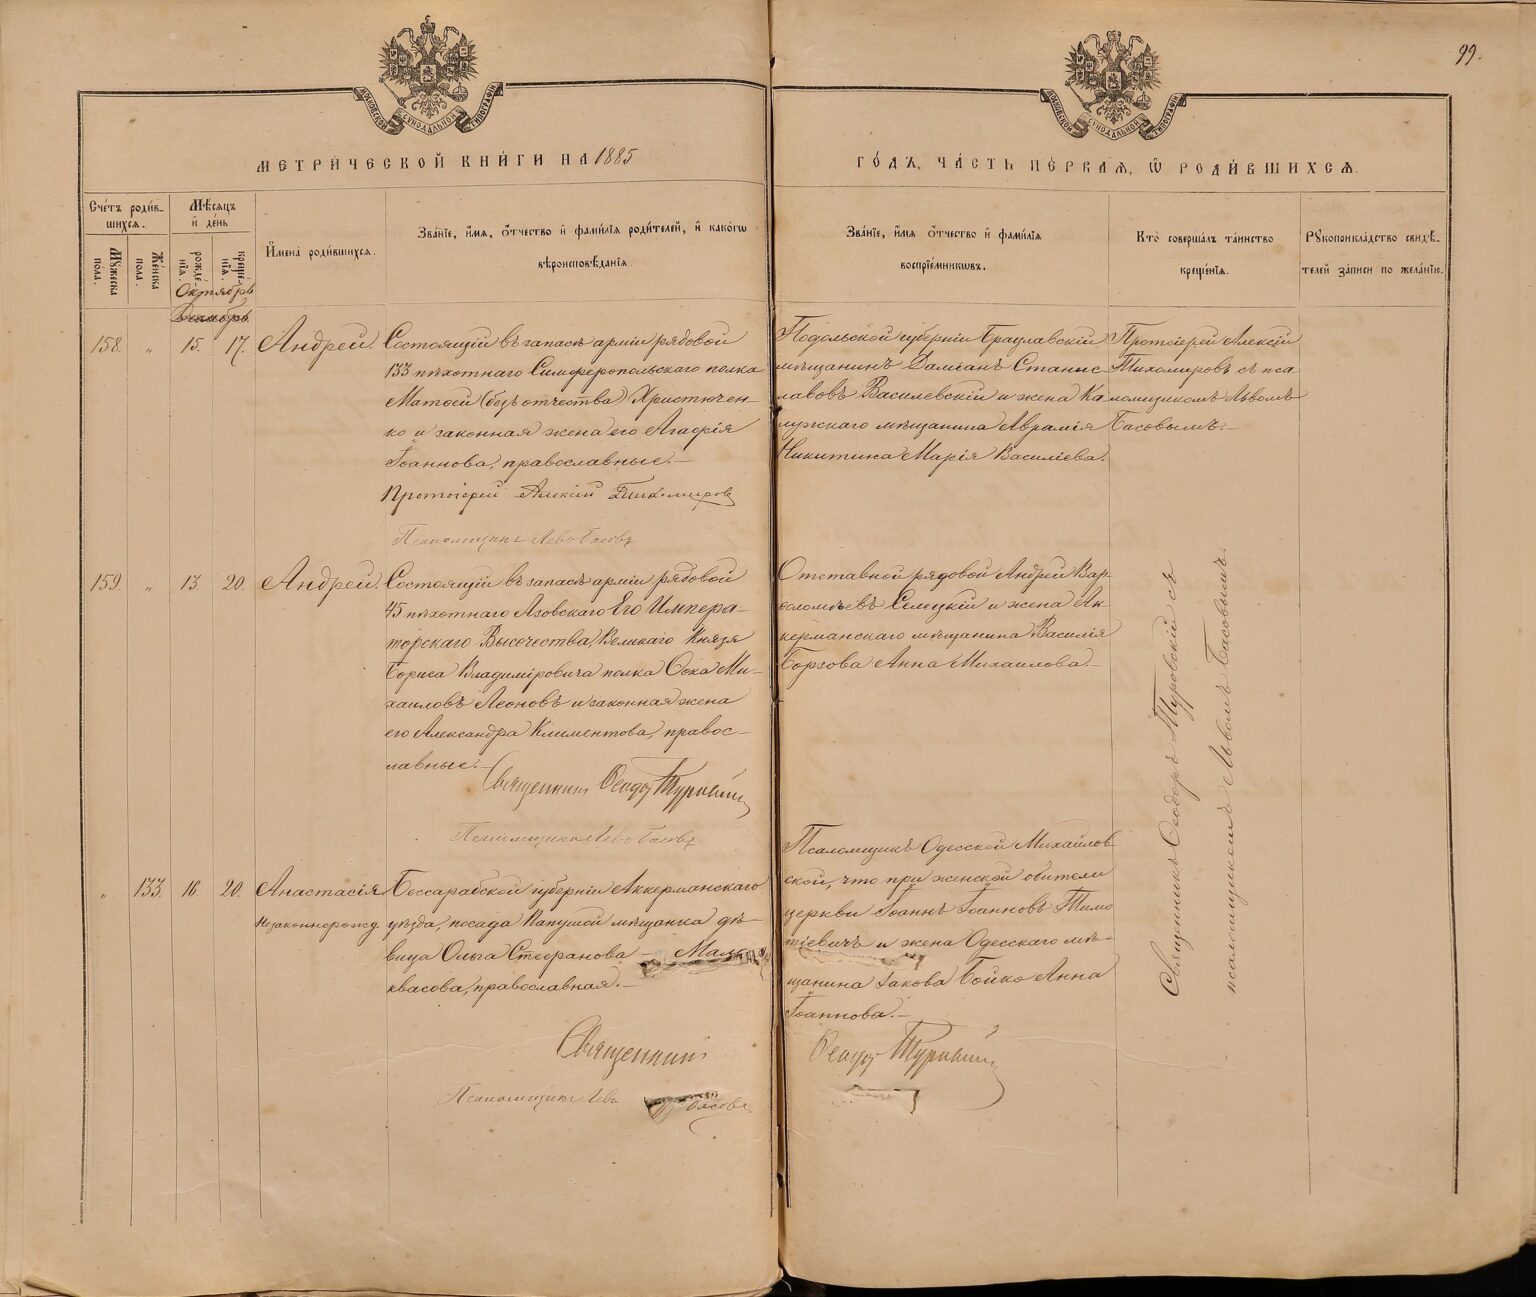 99.
МОСКОВСКОЙ СѴНОДАЛЬНОЙ ТИПОГРАФІИ
МОСКОВСКОЙ СѴНОДАЛЬНОЙ ТИПОГРАФІИ
МЕТРИ́ЧЕСКОЙ КНИ́ГИ НА 1885
ГО́ДЪ, ЧА́СТЬ ПЕ́РВАѦ, Ѡ РОДИ́ВШИХСѦ.
Сче́тъ роди́в-
шихсѧ.
Мꙋ́жеска по́ла.
Же́нска по́ла.
Мѣ́сѧцъ
и҆ де́нь
рожде́-
нїѧ.
креще́-
нїѧ.
И҆мена̀ роди́вшихсѧ.
Зва́нїе, и҆́мѧ, ѻ҆́тчество и҆ фами́лїѧ роди́телей, и҆ како́гѡ
вѣроисповѣ́данїѧ.
Зва́нїе, и҆́мѧ ѻ҆́тчество и҆ фами́лїѧ
воспрїе́мникѡвъ.
Кто̀ соверша́лъ та́инство
креще́нїѧ.
Рꙋкоприкла́дство свидѣ́-
телей за́писи по жела́нїю.
Октябрь
Декабрь
158. „ 15. 17. Андрей.
Состоящій въ запасѣ арміи рядовой
133 пѣхотнаго Симферопольскаго полка
Матѳей (безъ отчества) Христючен-
ко и законная жена его Агафія
Іоаннова, православные.—
Протоіерей Алексій Тихомировъ
Псаломщикъ Левъ Басовъ
Подольской губерніи Брацлавскій
мѣщанинъ Даміанъ Станис
лавовъ Василевскій и жена Ка
лужскаго мѣщанина Аврамія
Никитина Марія Василіева.
Протоіерей Алексій
Тихомировъ съ пса
ломщикомъ Львомъ
Басовымъ.—
159 „ 13. 20. Андрей.
Состоящій въ запасѣ арміи рядовой
45 пѣхотнаго Азовскаго Его Импера-
торскаго Высочества, Великаго Князя
Бориса Владиміровича полка Ѳока Ми-
хаиловъ Леоновъ и законная жена
его Александра Климентова, правос-
лавные.—
Священникъ Ѳеодоръ Туровскій
Псаломщикъ Левъ Басовъ
Отставной рядовой Андрей Вар-
ѳоломѣевъ Селецкій и жена Ак-
керманскаго мѣщанина Василія
Борзова Анна Михаилова.—
Священникъ Ѳеодоръ Туровскій съ
псаломщикомъ Львомъ Басовымъ.
„ 133. 16. 20. Анастасія
Незаконнорожд.
Бессарабской губерніи Аккерманскаго
уѣзда, посада Папушой мѣщанка дѣ-
вица Ольга Стефанова — Мала
квасова, православная.—
Священникъ
Псаломщикъ Левъ Басовъ
Псаломщикъ Одесской Михайлов
ской, что при женской обители
церкви Іоаннъ Іоанновъ Тимо
ѳіевичъ и жена Одесскаго мѣ-
щанина Іакова Бойко Анна
Іоаннова.—
Ѳеодоръ Туровскій